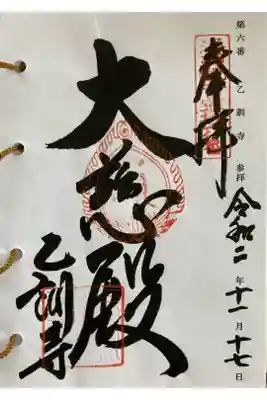 第六番 乙訓寺 参拝 令和二年十一月十七日
奉拝
大慈殿
乙訓寺